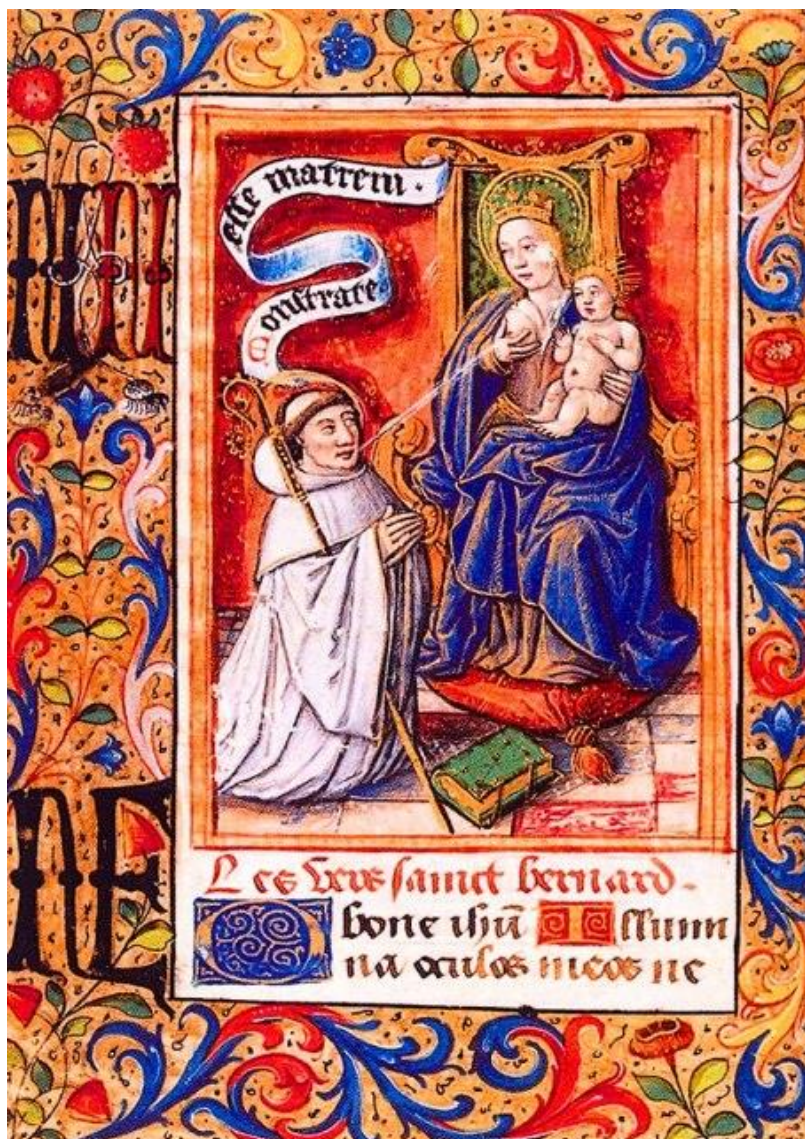 Monstrate
esse matrem .
NE
Les vers sainct bernard .
O bone ihũ Illumi
na oculos meos ne